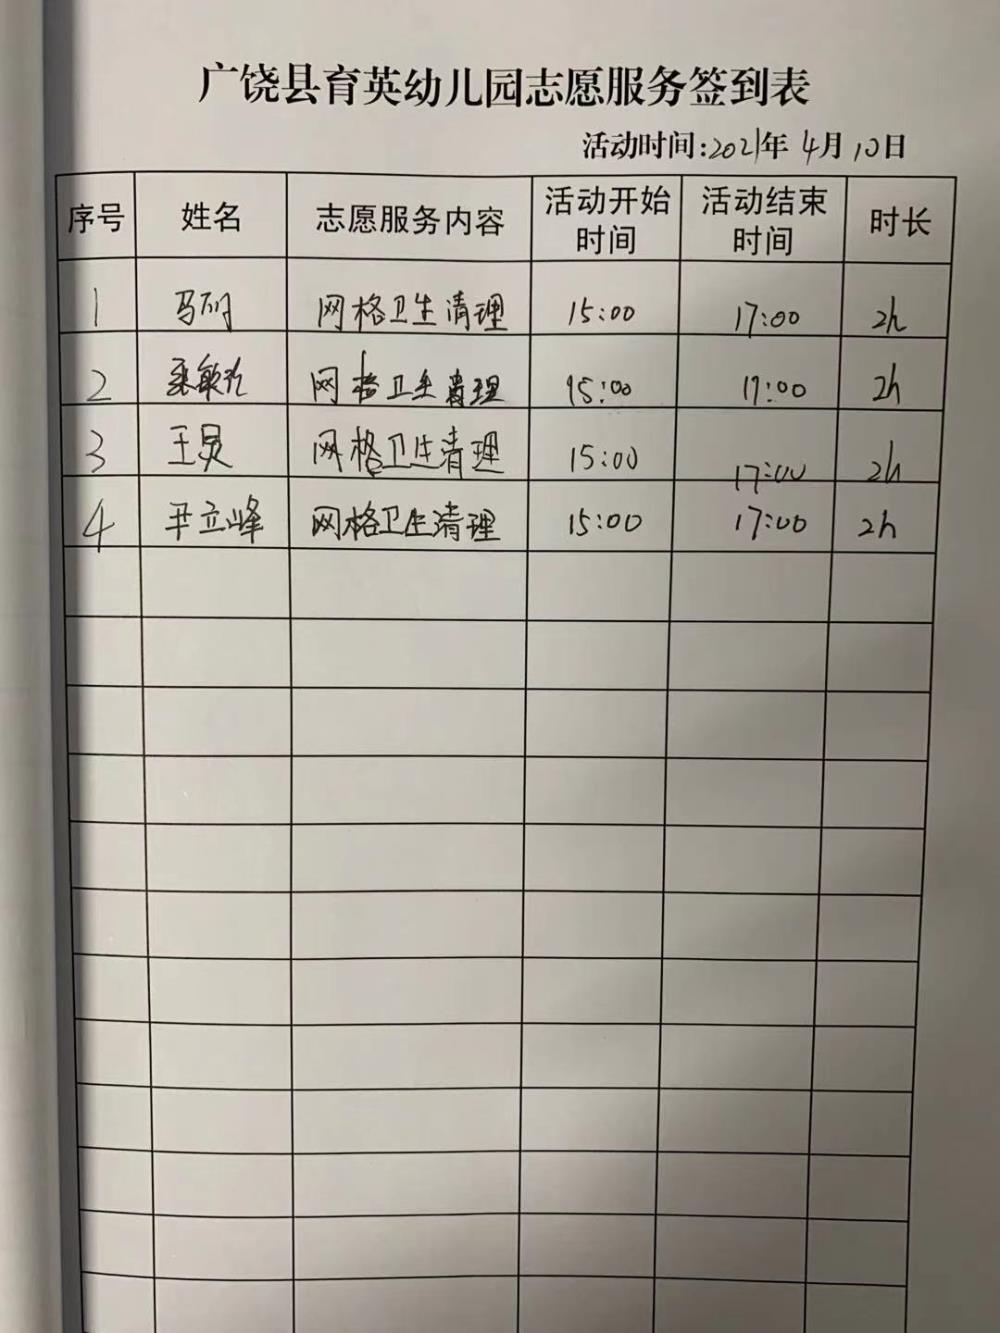 广饶县育英幼儿园志愿服务签到表
活动时间:2021年 4月 10日
序号 姓名 志愿服务内容 活动开始时间 活动结束时间 时长
1 网格卫生清理 15:00 17:00 2h
2 网格卫生清理 15:00 17:00 2h
3 王昊 网格卫生清理 15:00 17:00 2h
4 尹立峰 网格卫生清理 15:00 17:00 2h